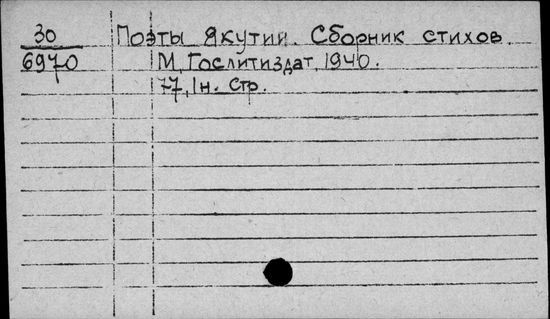 30 Поэты Якутии. Сборник стихов.
6970 М, Гослитиздат, 1940.
77, 1н. стр.